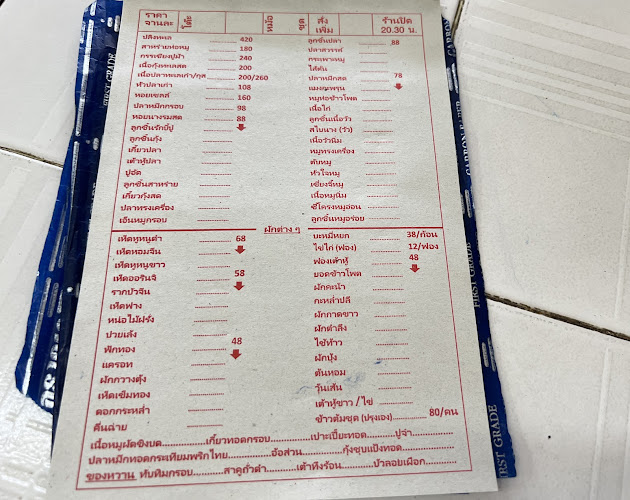 ราคา จานละ โต๊ะ หม้อ ชุด สั่งเพิ่ม ร้านปิด 20.30 น.
ปลิงทะเล 420
สาหร่ายห่อหมู 180
กรรเชียงปูม้า 240
เนื้อกุ้งทะเลสด 200
เนื้อปลาทะเลเก๋า/กุส 200/260
หัวปลาเก๋า 108
หอยเชลล์ 160
ปลาหมึกกรอบ 98
หอยนางรมสด 88
ลูกชิ้นรักบี้ปู
ลูกชิ้นกุ้ง
เกี๊ยวปลา
เต้าหู้ปลา
ปูอัด
ลูกชิ้นสาหร่าย
เกี๊ยวกุ้งสด
ปลาทรงเครื่อง
เอ็นหมูกรอบ
ลูกชิ้นปลา 88
ปลาสวรรค์
กระเพาะหมู
ไส้ตัน
ปลาหมึกสด 78
แมงกะพรุน
หมูห่อข้าวโพด
เนื้อไก่
ลูกชิ้นเนื้อวัว
สไบนาง (วัว)
เนื้อวัวนิ่ม
หมูทรงเครื่อง
ตับหมู
หัวใจหมู
เซี่ยงจี๊หมู
เนื้อหมูนิ่ม
ซี่โครงหมูอ่อน
ลูกชิ้นหมูอร่อย
ผักต่าง ๆ
เห็ดหูหนูดำ 68
เห็ดหอมจีน
เห็ดหูหนูขาว
เห็ดออรินจิ 58
รากบัวจีน
เห็ดฟาง
หน่อไม้ฝรั่ง
ปวยเล้ง
ฟักทอง 48
แครอท
ผักกวางตุ้ง
เห็ดเข็มทอง
ดอกกระหล่ำ
คื่นฉ่าย
บะหมี่หยก 38/ก้อน
ไข่ไก่ (ฟอง) 12/ฟอง
ฟองเต้าหู้ 48
ยอดข้าวโพด
ผักคะน้า
กะหล่ำปลี
ผักกาดขาว
ผักตำลึง
ไชเท้าว
ผักบุ้ง
ต้นหอม
วุ้นเส้น
เต้าหู้ขาว / ไข่
ข้าวต้มชุด (ปรุงเอง) 80/คน
เนื้อหมูผัดขิงบด เกี๊ยวทอดกรอบ เปาะเปี๊ยะทอด ปูจ๋า
ปลาหมึกทอดกระเทียมพริกไทย อ้อส่วน กุ้งชุบแป้งทอด
ของหวาน ทับทิมกรอบ สาคูถั่วดำ เต้าทึงร้อน บัวลอยเผือก
FIRST GRADE
CARBON PAPER
FIRST GRADE
CARBON PAPER
FIRST GRADE